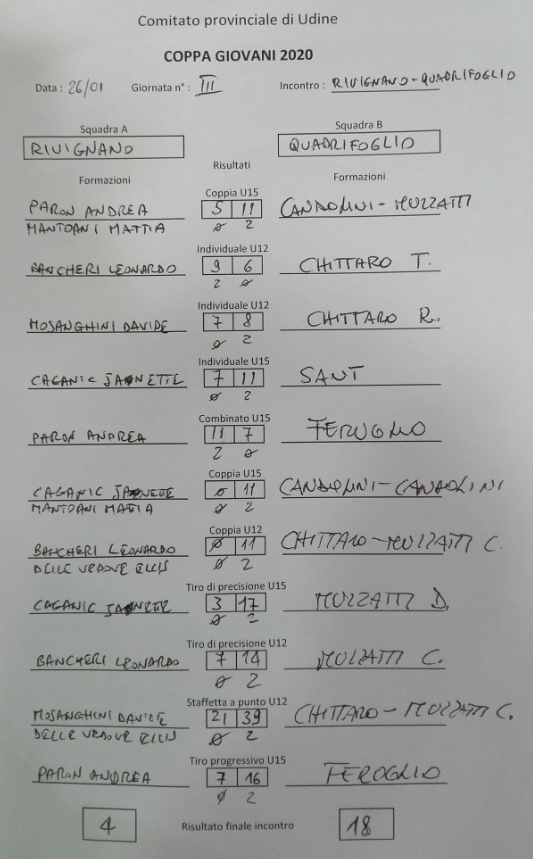 Comitato provinciale di Udine
COPPA GIOVANI 2020
Data : 26/01 Giornata n° : III Incontro : RIVIGNANO-QUADRIFOGLIO
Squadra A Squadra B
RIVIGNANO QUADRIFOGLIO
Risultati
Formazioni Formazioni
Coppia U15
PARON ANDREA 5 11 CANDOLINI - MUZZATTI
MANTOANI MATTIA 0 2
Individuale U12
BANCHERI LEONARDO 9 6 CHITTARO T.
2 0
Individuale U12
MOSANGHINI DAVIDE 7 8 CHITTARO R.
0 2
Individuale U15
CAGANIC 7 11 SANT
0 2
Combinato U15
PARON ANDREA 11 7 FERUGLIO
2 0
Coppia U15
CAGANIC 0 11 CANDOLINI-CANDOLINI
MANTOANI MATTIA 0 2
Coppia U12
BANCHERI LEONARDO 0 11 CHITTARO-MUZZATTI C.
DELLE VEDOVE 0 2
Tiro di precisione U15
CAGANIC 3 17 MUZZATTI D.
0 2
Tiro di precisione U12
BANCHERI LEONARDO 7 14 MUZZATTI C.
0 2
Staffetta a punto U12
MOSANGHINI DAVIDE 21 39 CHITTARO - MUZZATTI C.
DELLE VEDOVE 0 2
Tiro progressivo U15
PARON ANDREA 7 16 FEROGLIO
0 2
4 Risultato finale incontro 18